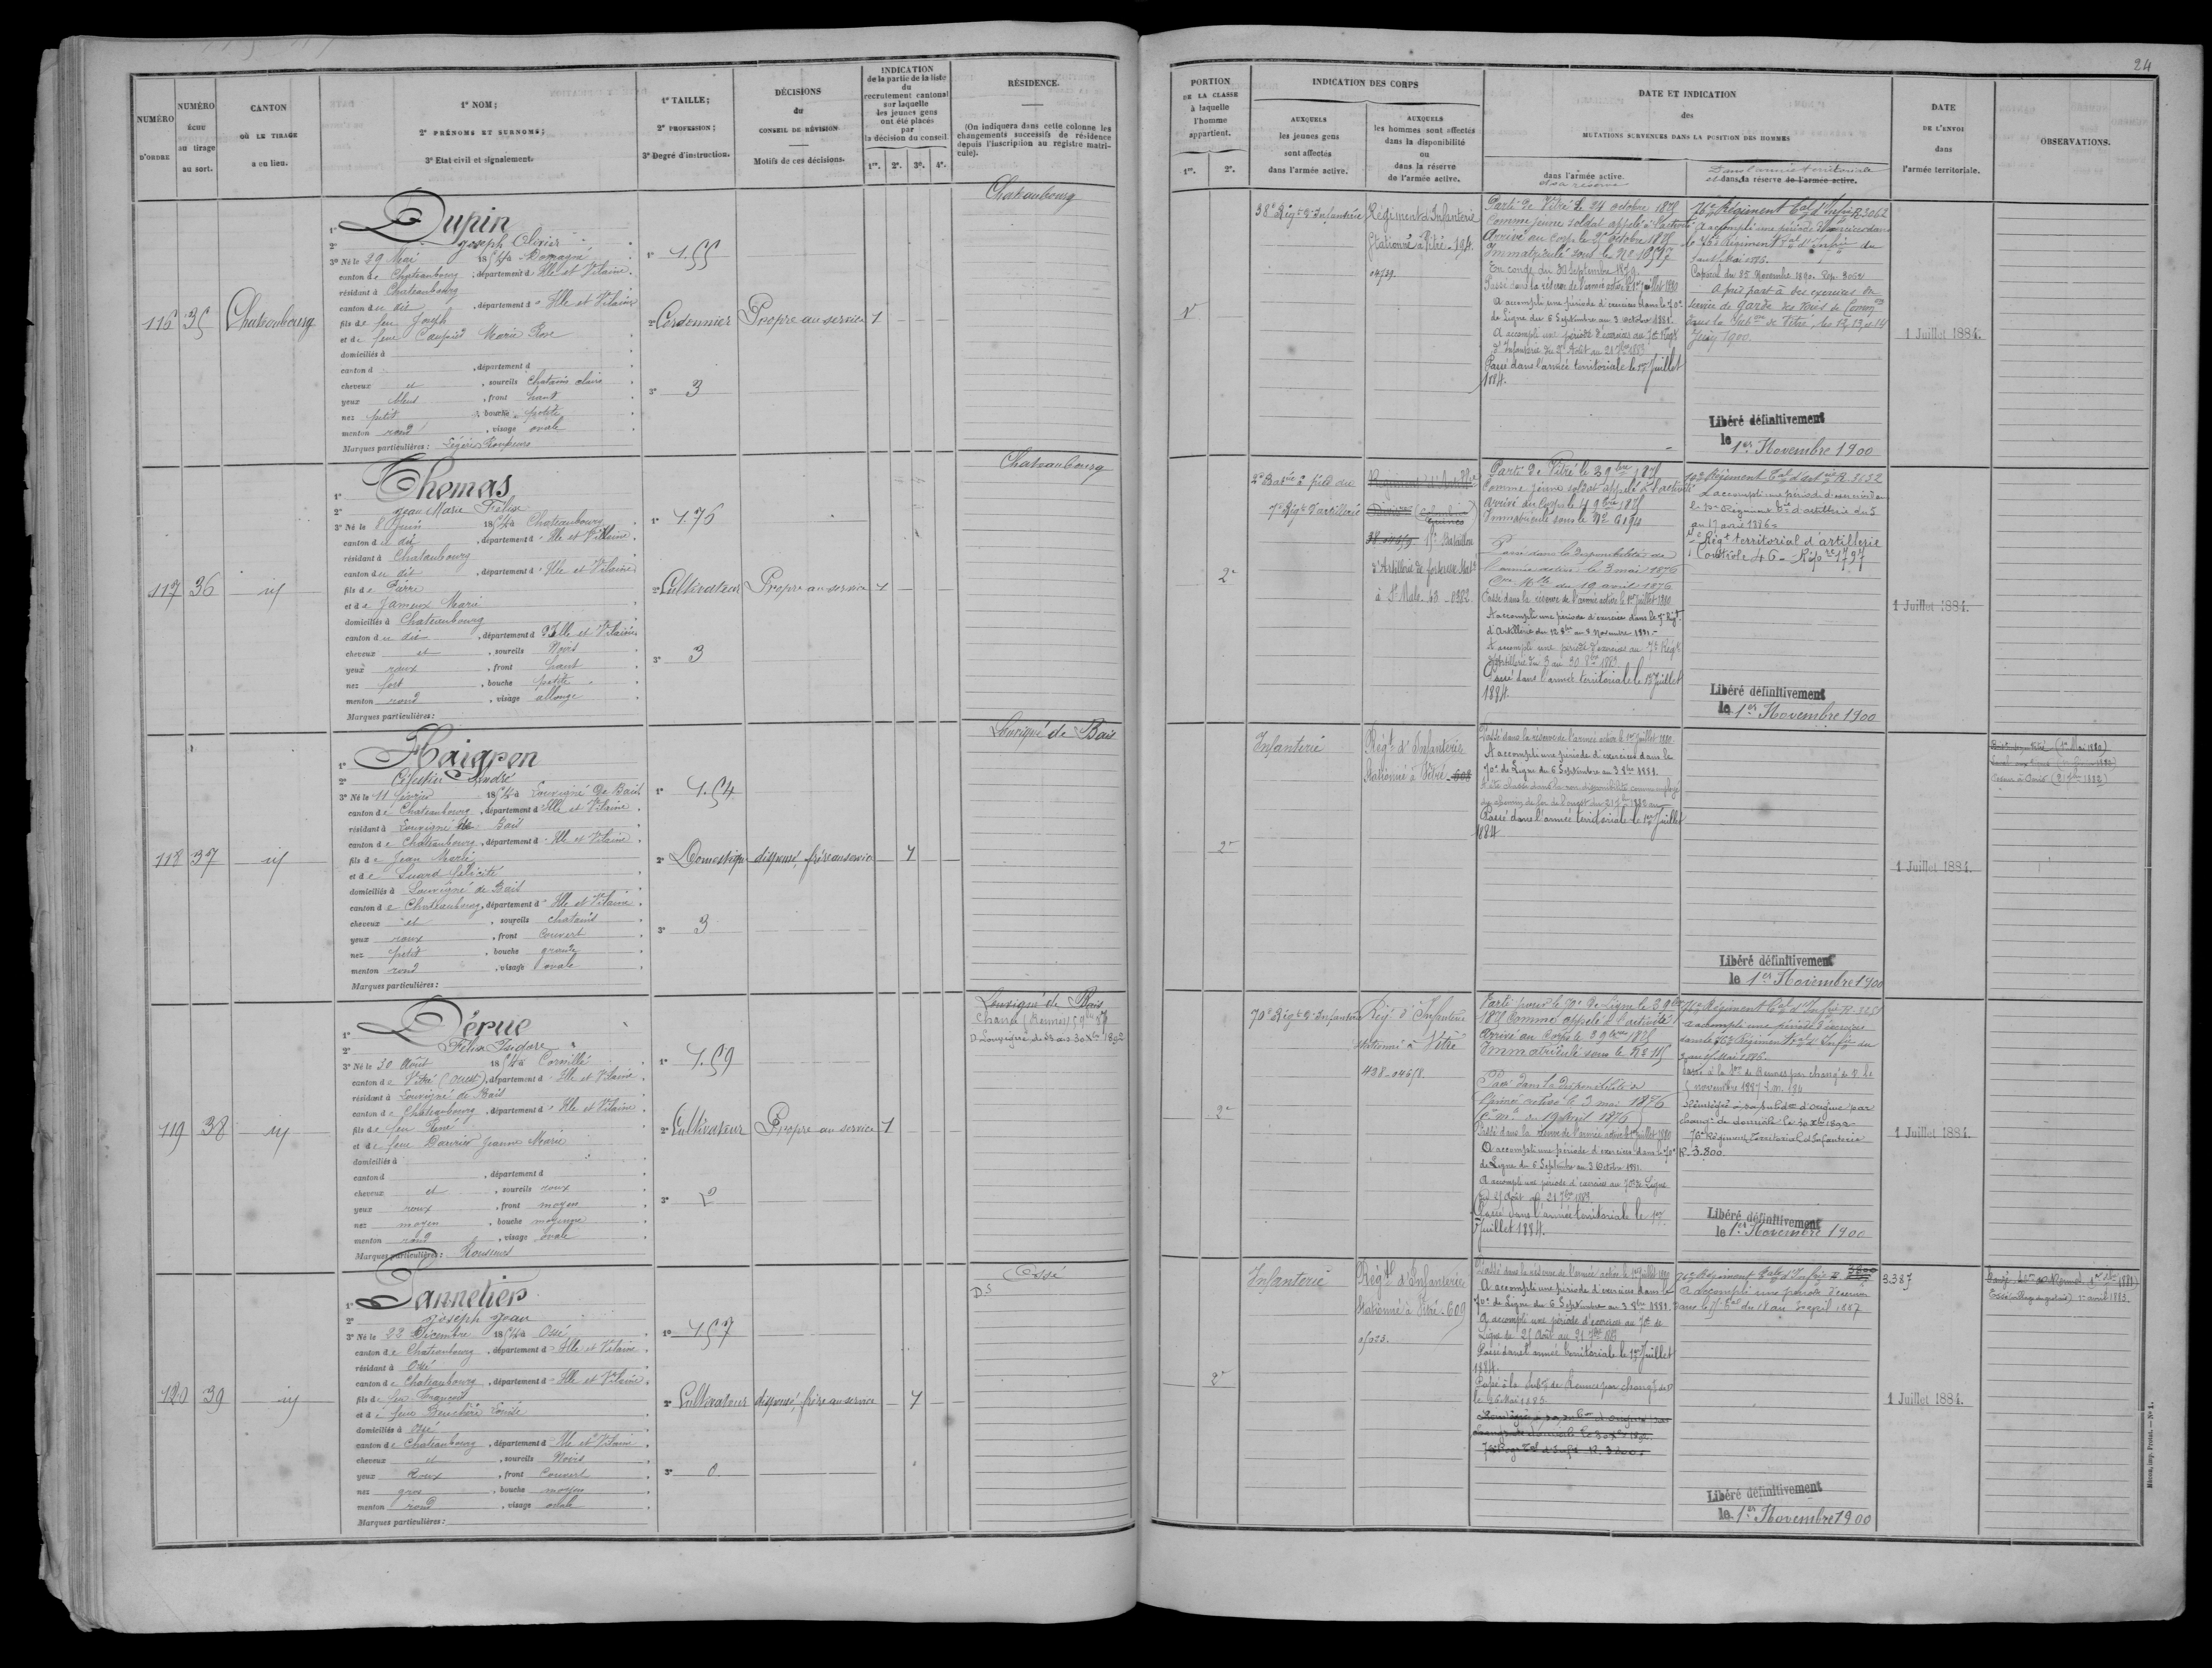 24
NUMÉRO
D'ORDRE
NUMÉRO
ÉCHU
au tirage
au sort.
CANTON
OÙ LE TIRAGE
a eu lieu.
1° NOM;
2° PRÉNOMS ET SURNOMS;
3° Etat civil et signalement.
1° TAILLE;
2° PROFESSION;
3° Degré d'instruction.
DÉCISIONS
du
CONSEIL DE RÉVISION
Motifs de ces décisions.
INDICATION
de la partie de la liste
du
recrutement cantonal
sur laquelle
les jeunes gens
ont été placés
par
la décision du conseil
1re. 2e. 3e. 4e.
RÉSIDENCE.
(On indiquera dans cette colonne les
changements successifs de résidence
depuis l'inscription au registre matri-
cule).
PORTION
DE LA CLASSE
à laquelle
l'homme
appartient.
1re. 2e.
INDICATION DES CORPS
AUXQUELS
les jeunes gens
sont affectés
dans l'armée active.
AUXQUELS
les hommes sont affectés
dans la disponibilité
ou
dans la réserve
de l'armée active.
DATE ET INDICATION
des
MUTATIONS SURVENUES DANS LA POSITION DES HOMMES
dans l'armée active.
et sa réserve
Dans l'armée territoriale
et dans sa réserve de l'armée active.
DATE
DE L'ENVOI
dans
l'armée territoriale.
OBSERVATIONS.
116 35 Chateaubourg
1° Dupin
2° Joseph Olivier
3° Né le 29 Mai 1854 à Domagné
canton de Chateaubourg, département d'Ille et Vilaine
résidant à Chateaubourg
canton du dit, département d'Ille et Vilaine
fils de feu Joseph
et de feue Marie Rose
domiciliés à
canton d , département d
cheveux et , sourcils Chatains clairs
yeux bleus , front haut
nez petit , bouche petite
menton rond , visage ovale
Marques particulières: Légères Rousseurs
1° 1.55
2° Cordonnier
3° 3
Propre au service 1
Chateaubourg
38e Régt d'Infanterie
Régiment d'Infanterie
Stationné à Vitré. 194
04739.
Parti de Vitré le 24 octobre 1875
Comme jeune soldat appelé à l'activité
Arrivé au corps le 25 octobre 1875
Immatriculé sous le No
En congé du 30 Septembre 1879.
Passé dans la réserve de l'armée active le 1er Juillet 1880
A accompli une période d'exercices dans le 70e
de Ligne du 6 Septembre au 3 octobre 1881.
A accompli une période d'exercices au 70e Régt
d'Infanterie du 25 Août au 21 7bre 1883
Passé dans l'armée territoriale le 1er Juillet
1884.
76e Régiment tal d'Infrie R.3062
A accompli une période d'exercices dans
le 76e Régiment tal d'Infrie du
Mai 1886.
Caporal du 25 Novembre 1890. Rep. 3062
A pris part à des exercices du
service de garde des voies de
dans la Subdon de Vitré, les 12, 13 et 14
Juin 1900.
Libéré définitivement
le 1er Novembre 1900
1 Juillet 1884.
117 36 id
1° Thomas
2° Jean Marie Félix
3° Né le 8 Juin 1854 à Chateaubourg
canton du dit , département d'Ille et Vilaine
résidant à Chateaubourg
canton du dit , département d'Ille et Vilaine
fils de Pierre
et de Jameux Marie
domiciliés à Chateaubourg
canton du dit , département d'Ille et Vilaine
cheveux et , sourcils Noirs
yeux roux , front haut
nez fort , bouche petite
menton rond , visage allongé
Marques particulières:
1° 1.76
2° Cultivateur
3° 3
Propre au service 1
Chateaubourg
2e
2e Batrie à pied du
7e Régt d'artillerie
Régiment d'Artillie
15e Bataillon
d'Artillerie de forteresse Statné
à St Malo. 43 - 0382
Parti de Vitré le 3 9bre 1875
Comme jeune soldat appelé à l'activité
Arrivé au Corps le 4 9bre 1875
Immatriculé sous le No 6194
Passé dans la disponibilité de
l'armée active le 3 mai 1876
du 19 avril 1876
Passé dans la réserve de l'armée active le 1er Juillet 1880
A accompli une période d'exercices dans le 7e Régt
d'Artillerie du 12 8bre au 8 Novembre 1881.
A accompli une période d'exercices au 7e Régt
d'Artillerie du 3 au 30 8bre 1883
Passé dans l'armée territoriale le 1er Juillet
1884.
10e Régiment tal d'artrie R. 3132
A accompli une période d'exercices dans
le 10e Régiment tal d'artillerie du 5
au 17 avril 1886
Régt territorial d'artillerie
Contrôle 46 - Rép re 1797
Libéré définitivement
le 1er Novembre 1900
1 Juillet 1884.
118 37 id
1° Haigron
2° Célestin André
3° Né le 11 février 1854 à Louvigné de Bais
canton de Chateaubourg, département d'Ille et Vilaine
résidant à Louvigné de Bais
canton de Chateaubourg, département d'Ille et Vilaine
fils de Jean Marie
et de Suard félicité
domiciliés à Louvigné de Bais
canton de Chateaubourg, département d'Ille et Vilaine
cheveux et , sourcils chatains
yeux roux , front Couvert
nez petit , bouche grande
menton rond , visage ovale
Marques particulières:
1° 1.54
2° Domestique
3° 3
dispensé, frère au service 1
Louvigné de Bais
2e
Infanterie
Régt d'Infanterie
Stationné à Vitré. 608
Passé dans la réserve de l'armée active le 1er Juillet 1880
A accompli une période d'exercices dans le
70e de Ligne du 6 Septembre au 3 8bre 1881.
A été classé dans la non disponibilité comme employé
des chemins de fer de l'ouest du 21 1882 au
Passé dans l'armée territoriale le 1er Juillet
1884
Libéré définitivement
le 1er Novembre 1900
1 Juillet 1884.
119 38 id
1° Dérue
2° Félix Isidore
3° Né le 30 Août 1854 à Cornillé
canton de Vitré (Ouest), département d'Ille et Vilaine
résidant à Louvigné de Bais
canton de Chateaubourg, département d'Ille et Vilaine
fils de feu René
et de feue Jeanne Marie
domiciliés à
canton d , département d
cheveux et , sourcils roux
yeux roux , front moyen
nez moyen , bouche moyenne
menton rond , visage ovale
Marques particulières: Rousseurs
1° 1.59
2° Cultivateur
3° 2
Propre au service 1
Louvigné de Bais
Chancé (Rennes) 5 9bre 87
D Louvigné de Bais 30 Xbre 1892
2e
70e Régt d'Infanterie
Régt d'Infanterie
stationné à Vitré
428-04658.
Parti pour le 70e de Ligne le 3 9bre
1875 Comme appelé à l'activité
Arrivé au Corps le 3 9bre 1875
Immatriculé sous le No 115
Passé dans la disponibilité de
l'armée active le 3 mai 1876
du 19 Avril 1876
Passé dans la réserve de l'armée active le 1er Juillet 1880
A accompli une période d'exercices dans le 70e
de Ligne du 6 Septembre au 3 Octobre 1881.
A accompli une période d'exercices au 70e de Ligne
du 25 Août au 21 7bre 1883.
Passé dans l'armée territoriale le 1er
Juillet 1884.
76e Régiment tal d'Infrie
a accompli une période d'exercices
dans le 76e Régiment tal d'Infrie du
Mai 1886.
Passé à la Son de Rennes par changt de D. le
5 novembre 1887
Réintégré à sa subdon d'origine par
changt de domicile le 30 Xbre 1892
76e Régiment Territorial d'Infanterie
R. 3.800.
Libéré définitivement
le 1er Novembre 1900
1 Juillet 1884.
120 39 id
1° Pannetier
2° Joseph Jean
3° Né le 22 Décembre 1854 à Ossé
canton de Chateaubourg, département d'Ille et Vilaine
résidant à Ossé
canton de Chateaubourg, département d'Ille et Vilaine
fils de feu François
et de feue Louise
domiciliés à Ossé
canton de Chateaubourg, département d'Ille et Vilaine
cheveux et , sourcils Noirs
yeux Roux , front Couvert
nez gros , bouche moyen
menton rond , visage ovale
Marques particulières:
1° 1.57
2° Cultivateur
3° 0
dispensé, frère au service 1
Ossé
2e
Infanterie
Régt d'Infanterie
Stationné à Vitré. 609
Passé dans la réserve de l'armée active le 1er Juillet 1880
A accompli une période d'exercices dans le
70e de Ligne du 6 Septembre au 3 8bre 1881.
A accompli une période d'exercices au 70e de
Ligne du 25 Août au 21 7bre 1883
Passé dans l'armée territoriale le 1er Juillet
1884.
Passé à la Subon de Rennes par changt de D
76e Régiment tal d'Infrie R. 3800 3.387
A accompli une période d'exercices
dans le 75e tal du 18 au 30 avril 1887
Libéré définitivement
le 1er Novembre 1900
1 Juillet 1884.